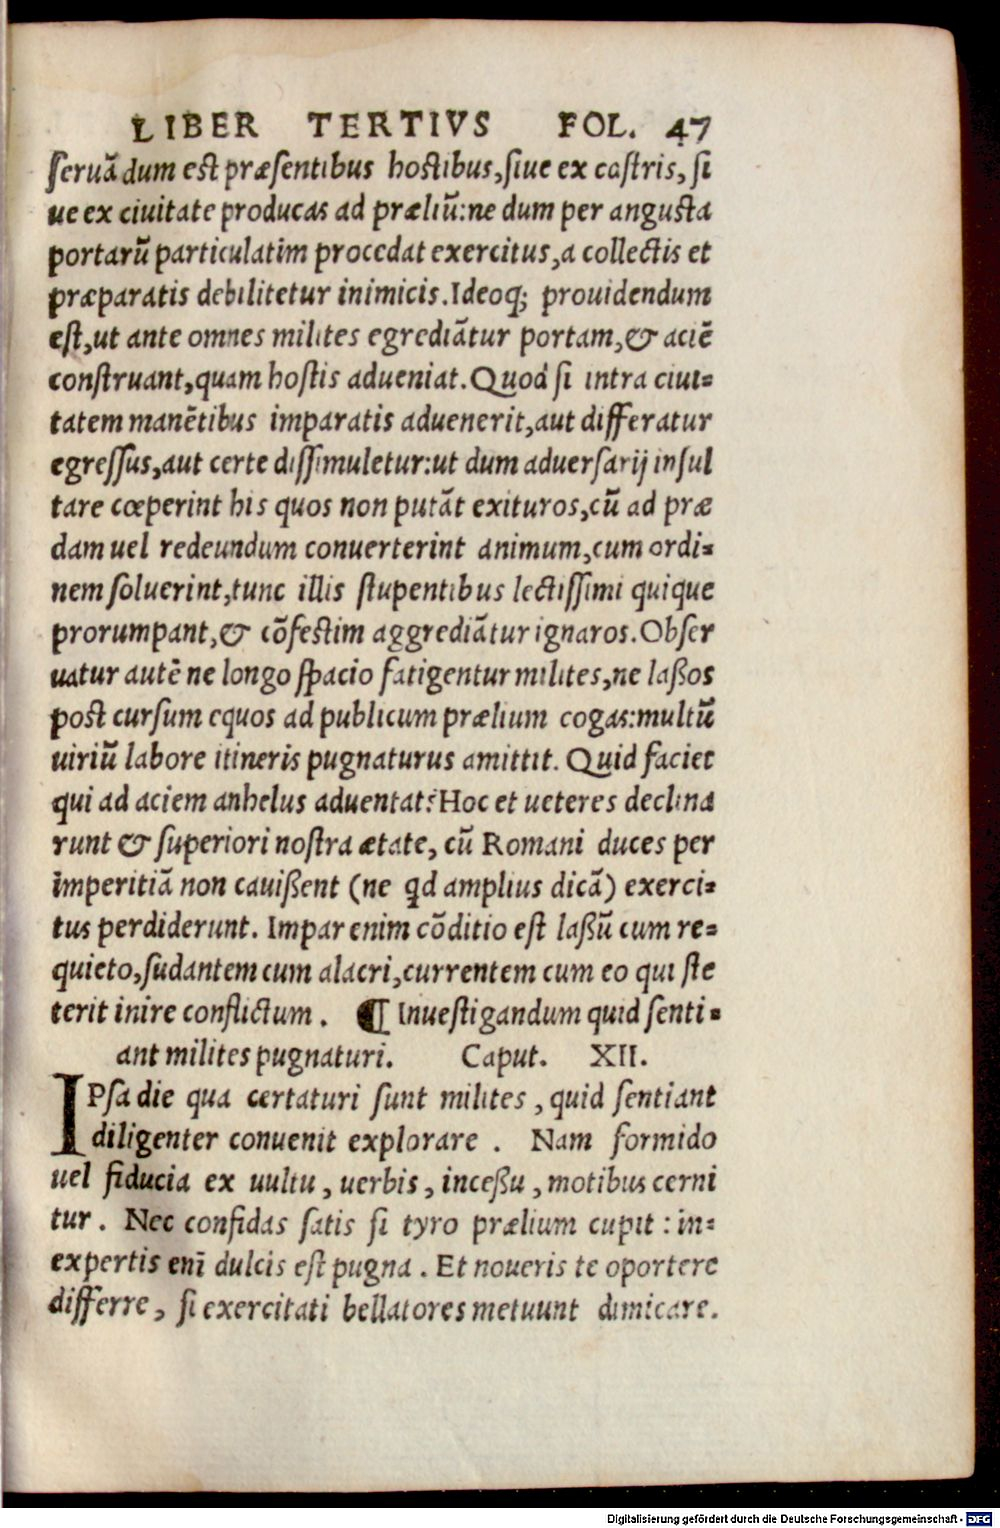 LIBER TERTIVS FOL. 47
seruādum est præsentibus hostibus, siue ex castris, si
ue ex ciuitate producas ad præliū: ne dum per angusta
portarū particulatim procedat exercitus, a collectis et
præparatis debilitetur inimicis. Ideoq; prouidendum
est, ut ante omnes milites egrediātur portam, & aciē
construant, quam hostis adueniat. Quod si intra ciui=
tatem manētibus imparatis aduenerit, aut differatur
egressus, aut certe dissimuletur: ut dum aduersarij insul
tare cœperint his quos non putāt exituros, cū ad præ
dam uel redeundum conuerterint animum, cum ordi=
nem soluerint, tunc illis stupentibus lectissimi quique
prorumpant, & cōfestim aggrediātur ignaros. Obser
uatur autē ne longo spacio fatigentur milites, ne laßos
post cursum equos ad publicum prælium cogas: multū
uiriū labore itineris pugnaturus amittit. Quid faciet
qui ad aciem anhelus aduentat? Hoc et ueteres declina
runt & superiori nostra ætate, cū Romani duces per
imperitiā non cauißent (ne qd amplius dicā) exerci=
tus perdiderunt. Impar enim cōditio est laßū cum re=
quieto, sudantem cum alacri, currentem cum eo qui ste
terit inire conflictum. ¶ Inuestigandum quid senti=
ant milites pugnaturi. Caput. XII.
IPsa die qua certaturi sunt milites, quid sentiant
diligenter conuenit explorare. Nam formido
uel fiducia ex uultu, uerbis, inceßu, motibus cerni
tur. Nec confidas satis si tyro prælium cupit: in=
expertis enī dulcis est pugna. Et noueris te oportere
differre, si exercitati bellatores metuunt dimicare.
Digitalisierung gefördert durch die Deutsche Forschungsgemeinschaft - DFG